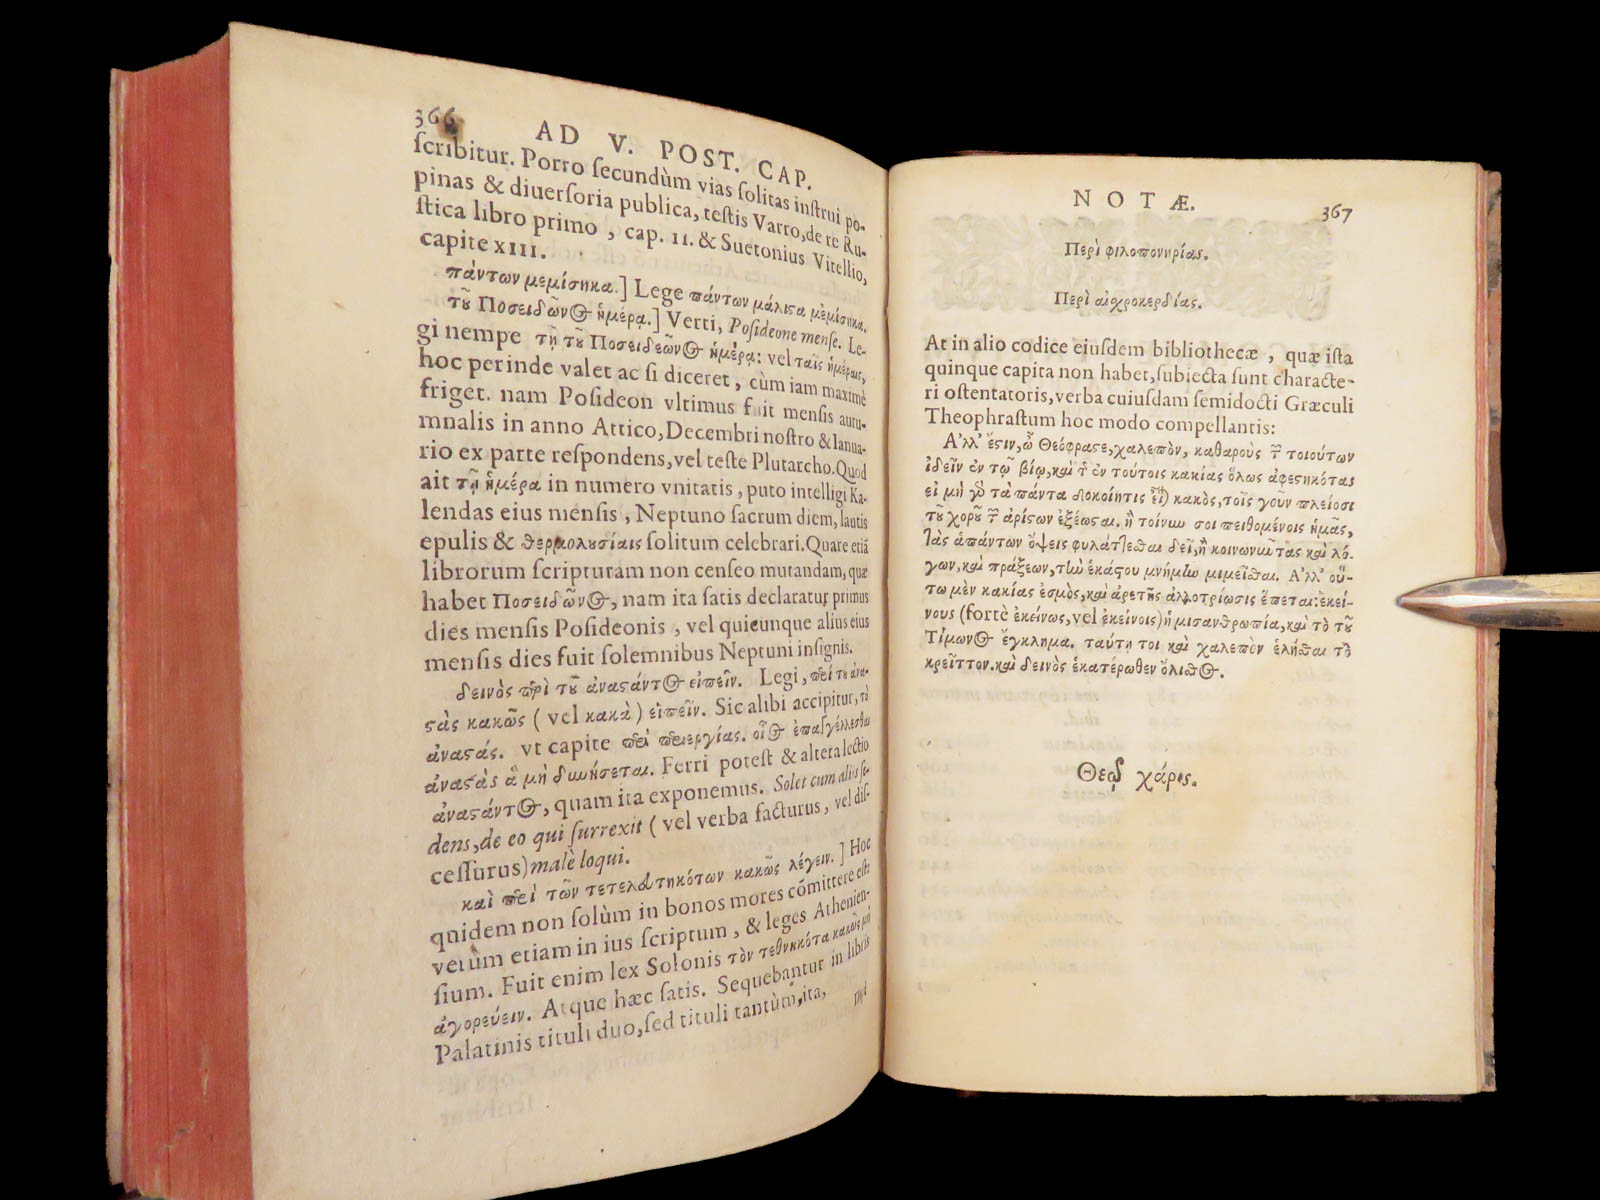 366
AD V. POST. CAP.
ſcribitur. Porro ſecundùm vias ſolitas inſtrui po-
pinas & diuerſoria publica, teſtis Varro, de re Ru-
ſtica libro primo, cap. 11. & Suetonius Vitellio,
capite XIII.
πάντων μεμίσηκα.] Lege πάντων μάλιϛα μεμίσηκα.
τοῦ Ποσειδῶνος ἡμέρᾳ.] Verti, Poſideone menſe. Le-
gi nempe τῇ τοῦ Ποσειδεῶνος ἡμέρᾳ: vel ταῖς ἡμέραις,
hoc perinde valet ac ſi diceret, cùm iam maximè
friget. nam Poſideon vltimus fuit menſis autu-
mnalis in anno Attico, Decembri noſtro & Ianua-
rio ex parte reſpondens, vel teſte Plutarcho. Quod
ait τῇ ἡμέρα in numero vnitatis, puto intelligi Ka-
lendas eius menſis, Neptuno ſacrum diem, lautis
epulis & θερμολυσίαις ſolitum celebrari. Quare etiā
librorum ſcripturam non cenſeo mutandam, quæ
habet Ποσειδῶνος, nam ita ſatis declaratur primus
dies menſis Poſideonis, vel quicunque alius eius
menſis dies fuit ſolemnibus Neptuni inſignis.
δεινὸς περὶ τοῦ ἀναϛάντος εἰπεῖν. Legi, περὶ τοῦ ἀνα-
ϛὰς κακῶς (vel κακὰ) εἰπεῖν. Sic alibi accipitur, τὸ
ἀναϛάς. vt capite περὶ περιεργίας. οἷος ἐπαγγέλλεσθαι
ἀναϛὰς ἃ μὴ δυνήσεται. Ferri poteſt & altera lectio
ἀναϛάντος, quam ita exponemus. Solet cum aliis ſe-
dens, de eo qui ſurrexit (vel verba facturus, vel diſ-
ceſſurus) malè loqui.
καὶ περὶ τῶν τετελευτηκότων κακῶς λέγειν.] Hoc
quidem non ſolùm in bonos mores cōmittere eſt:
verùm etiam in ius ſcriptum, & leges Athenien-
ſium. Fuit enim lex Solonis τὸν τεθνηκότα κακῶς μὴ
ἀγορεύειν. Atque hæc ſatis. Sequebantur in libris
Palatinis tituli duo, ſed tituli tantùm, ita,
NOTÆ.
367
Περὶ φιλοπονηρίας.
Περὶ αἰχροκερδίας.
At in alio codice eiuſdem bibliothecæ, quæ iſta
quinque capita non habet, ſubiecta ſunt characte-
ri oſtentatoris, verba cuiuſdam ſemidocti Græculi
Theophraſtum hoc modo compellantis:
Ἀλλ' ἔϛιν, ὦ Θεόφραϛε, χαλεπὸν, καθαροὺς τῶν τοιούτων
ἰδεῖν ἐν τῷ βίῳ, καὶ τῶν ἐν τούτοις κακίας ὅλως ἀφεϛηκότας
εἰ μὴ γὰρ τὰ πάντα δοκοίητις εἶναι κακὸς, τοῖς γοῦν πλείοσι
τοῦ χοροῦ τῶν ἀρίϛων ἐξέωσται. ἢ τοίνυν σοι πειθομένοις ἡμᾶς,
τὰς ἁπάντων ὄψεις φυλάττεσθαι δεῖ, ἢ κοινωνοῦντας καὶ λό-
γων, καὶ πράξεων, τὴν ἑκάϛου μνήμην μιμεῖσθαι. Ἀλλ' οὕ-
τω μὲν κακίας ἑσμὸς, καὶ ἀρετῆς ἀλλοτρίωσις ἕπεται: ἐκεί-
νους (fortè ἐκείνως, vel ἐκείνοις) ἡ μισανθρωπία, καὶ τὸ τοῦ
Τίμωνος ἔγκλημα. ταύτῃ τοι καὶ χαλεπὸν ἑλέσθαι τὸ
κρεῖττον. καὶ δεινὸς ἑκατέρωθεν ὄλισθος.
Θεῷ χάρις.